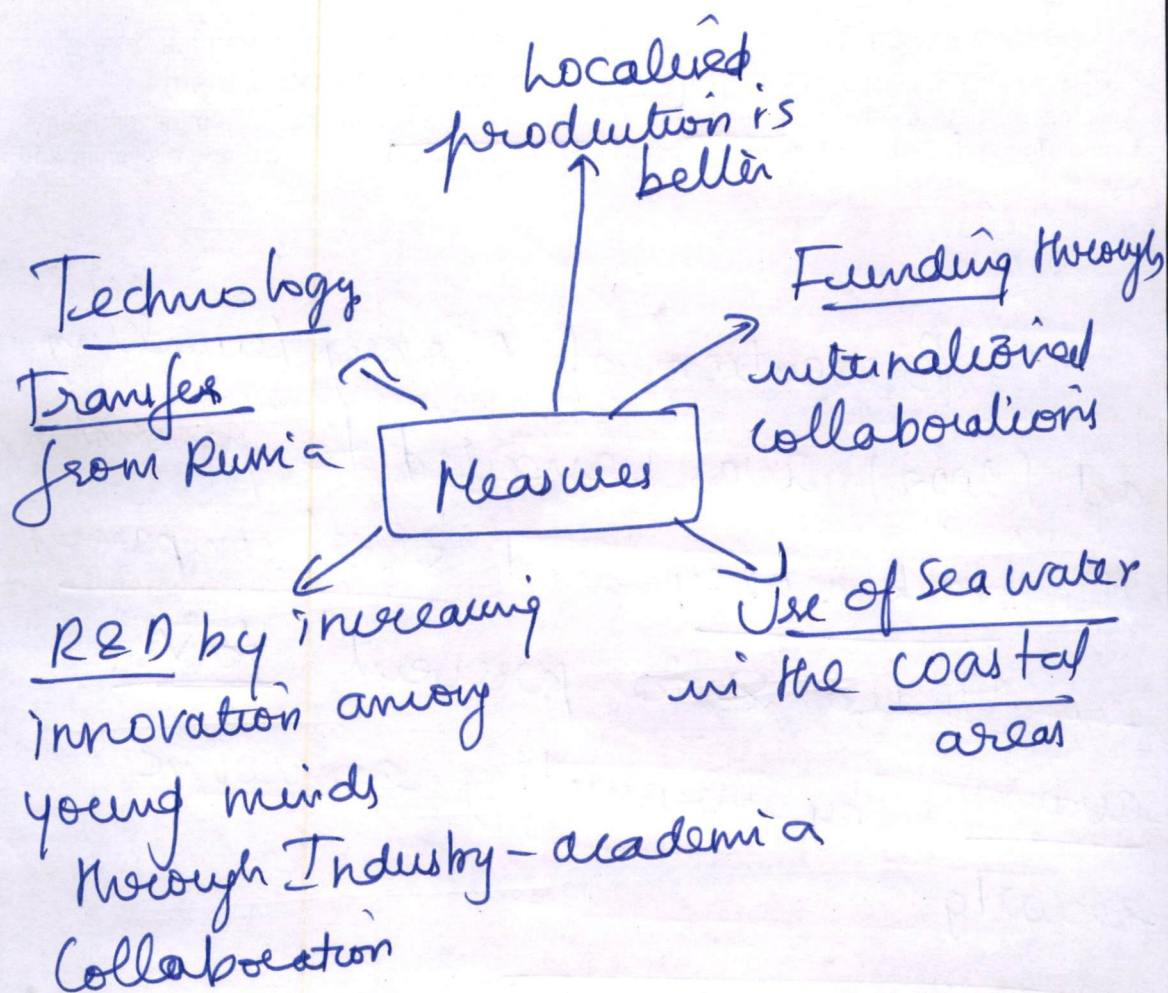 Localised
production is
better
Technology
Transfer
from Russia
Funding through
international
collaborations
Measures
R&D by increasing
innovation among
young minds
through Industry-academia
Collaboration
Use of Sea water
in the coastal
areas